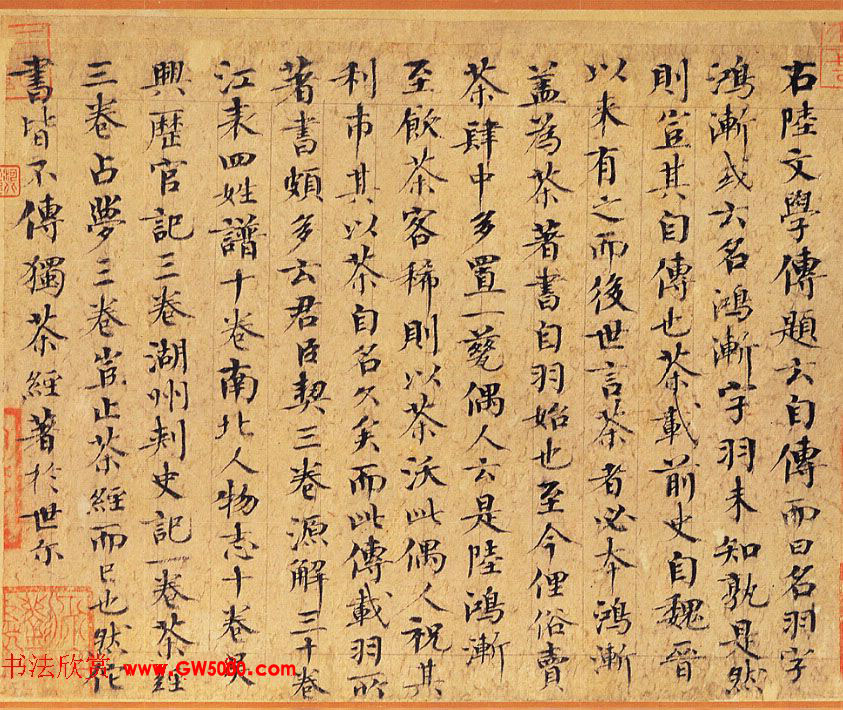 右陸文學傳題云自傳而曰名羽字
鴻漸或云名鴻漸字羽未知孰是然
則豈其自傳也茶載前史自魏晉
以来有之而後世言茶者必本鴻漸
蓋為茶著書自羽始也至今俚俗賣
茶肆中多置一甆偶人云是陸鴻漸
至飲茶客稀則以茶沃此偶人祝其
利市其以茶自名久矣而此傳載羽所
著書頗多云君臣契三卷源解三十卷
江表四姓譜十卷南北人物志十卷吳
興歷官記三卷湖州刺史記一卷茶經
三卷占夢三卷豈止茶經而已也然佗
書皆不傳獨茶經著於世尔
书法欣赏 www.GW5080.com